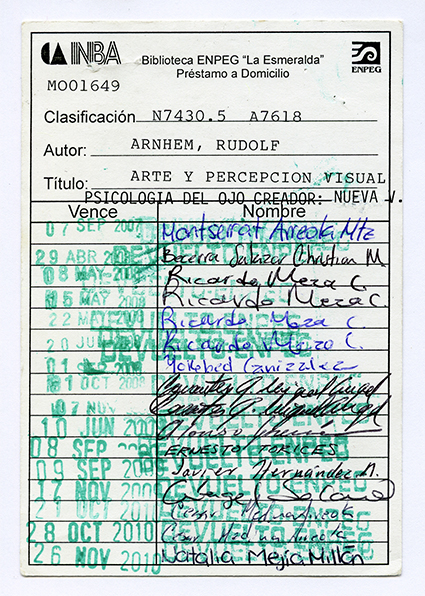 INBA Biblioteca ENPEG "La Esmeralda" ENPEG
Préstamo a Domicilio
MO01649
Clasificación N7430.5 A7618
Autor: ARNHEM, RUDOLF
Título: ARTE Y PERCEPCION VISUAL
PSICOLOGIA DEL OJO CREADOR: NUEVA V.
Vence Nombre
07 SEP 2007 Montserrat Arreola Mtz
29 ABR 2008 Becerra Salazar Christian M.
08 MAY 2008 Ricardo Meza C.
05 MAY 2008 Ricardo Meza C.
22 MAY 2008 Ricardo Meza C.
20 JUN 2008 Ricardo Meza C.
DEVUELTO ENPEG
01 SEP Yokebed
01 OCT 2008
07 NOV
10 JUN 2009
08 SEP ERNESTO TORICES
09 SEP 2009 Javier Hernández M.
17 NOV 2009
DEVUELTO ENPEG
Cesar Medina Arreola
28 OCT 2010 Cesar Medina Arreola
26 NOV 2010 Natalia Mejía Millán